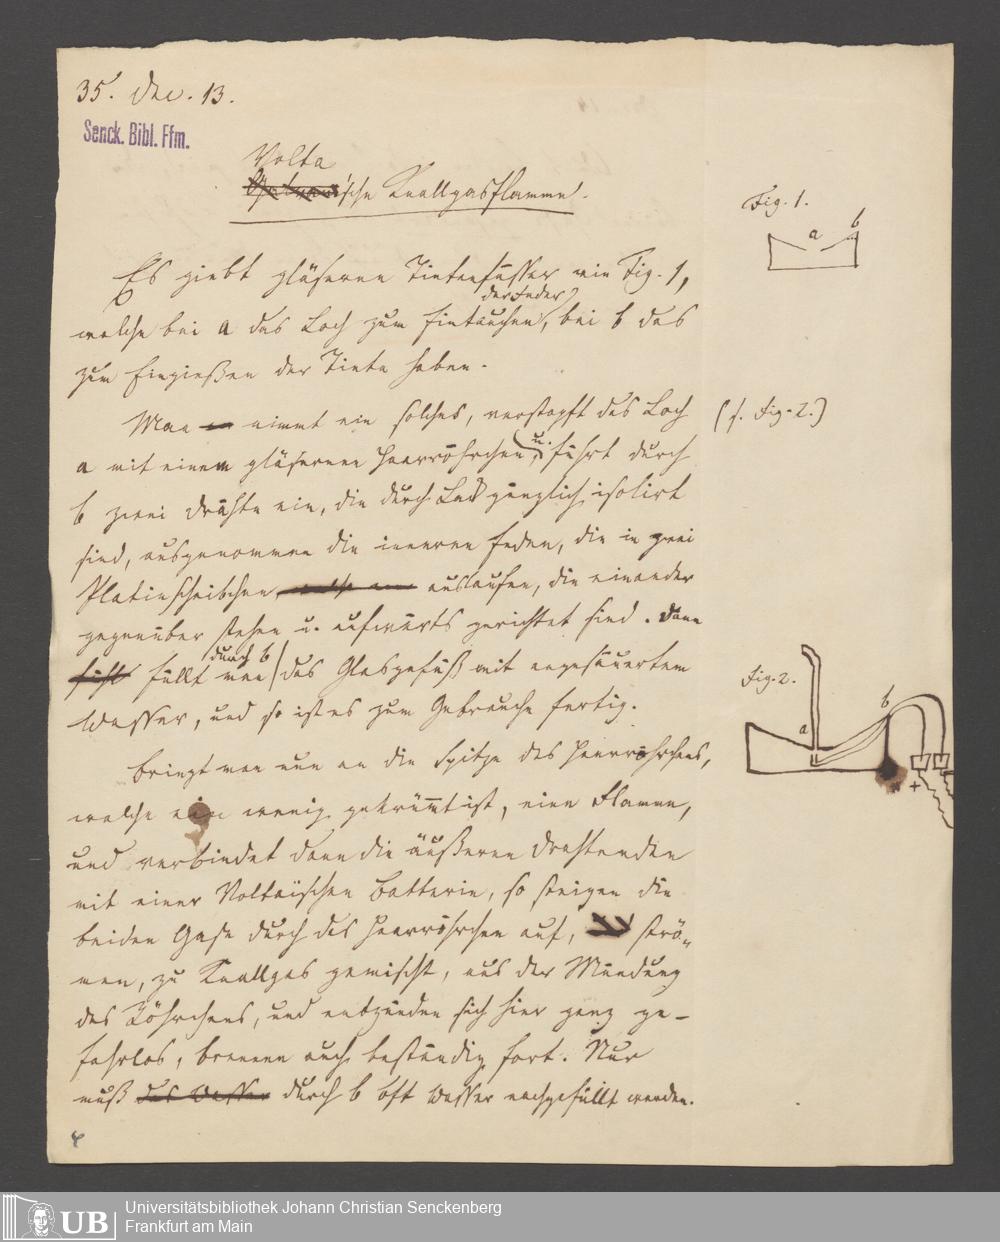 35. Dec. 13.
Senck. Bibl. Ffm.
Volta
'sche Knallgasflamme.
Fig. 1.
a b
Es giebt gläserne Tintenfässer wie Fig. 1,
der Feder
welche bei a das Loch zum Eintauchen, bei b das
zum Eingießen der Tinte haben.
Man nimmt ein solches, verstopft das Loch
(s. Fig. 2.)
a mit einem gläsernen Haarröhrchen, u. führt durch
b zwei Drähte ein, die durch Lack gänzlich isolirt
sind, ausgenommen die inneren Enden, die in zwei
Platinscheibchen auslaufen, die einander
gegenüber stehen u. aufwärts gerichtet sind. Dann
füllt man durch b das Glasgefäß mit angesäuertem
Wasser, und so ist es zum Gebrauche fertig.
Fig. 2.
a b
+
Bringt man nun an die Spitze des Haarröhrchens,
welche ein wenig gekrümmt ist, eine Flamme,
und verbindet dann die äußeren Drahtenden
mit einer Voltaischen Batterie, so steigen die
beiden Gase durch das Haarröhrchen auf, strö-
men, zu Knallgas gemischt, aus der Mündung
des Röhrchens, und entzünden sich hier ganz ge-
fahrlos, brennen auch beständig fort. Nur
muß das Wasser durch b oft Wasser nachgefüllt werden.
UB
Universitätsbibliothek Johann Christian Senckenberg
Frankfurt am Main